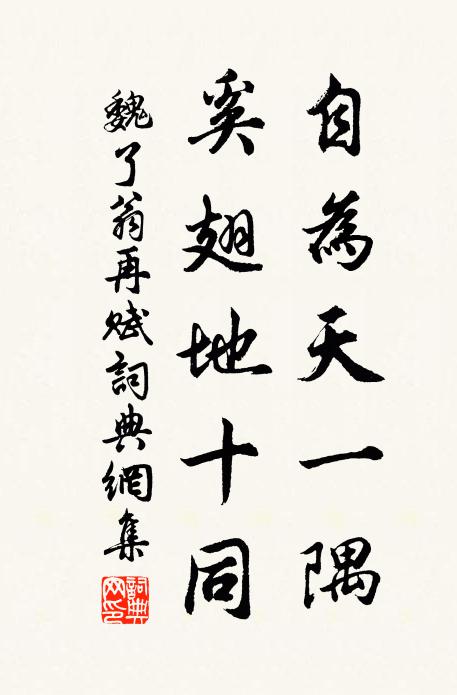 自為天一隅
奚翅地十同
魏了翁再賦詞典網集
詞典網印